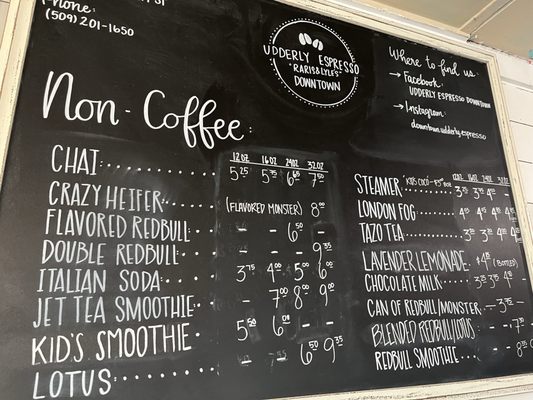 Phone:
(509) 201-1650
UDDERLY ESPRESSO
DOWNTOWN
Where to find us
→ Facebook:
UDDERLY ESPRESSO DOWNTOWN
→ Instagram:
downtown.udderly espresso
Non-Coffee:
12OZ 16OZ 24OZ 32OZ
CHAI 5.25 5.35 6.65 7.50
CRAZY HEIFER (FLAVORED MONSTER) 8.00
FLAVORED REDBULL - - 6.50 -
DOUBLE REDBULL - - - 9.35
ITALIAN SODA 3.75 4.00 5.00 6.00
JET TEA SMOOTHIE - 7.00 8.00 9.00
KID'S SMOOTHIE 5.50 6.00
LOTUS - - 6.50 9.35
12OZ 16OZ 24OZ
STEAMER
LONDON FOG
TAZO TEA
LAVENDER LEMONADE (BOTTLED)
CHOCOLATE MILK
CAN OF REDBULL/MONSTER
BLENDED REDBULL/LOTUS
REDBULL SMOOTHIE